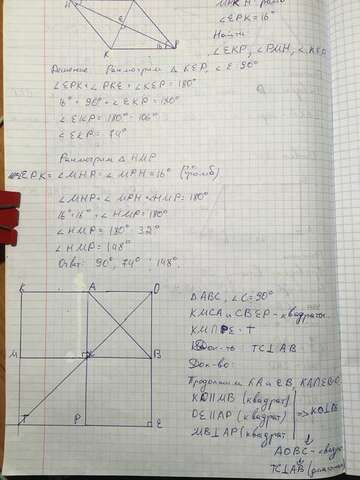 К
Р
16°
∠EPK=16°
Найти
∠EKP, ∠PMH, ∠KEP
Решение. Рассмотрим Δ KEP, ∠E=90°
∠EPK+∠PKE+∠KEP=180°
16°+90°+∠EKP=180°
∠EKP=180°-106°
∠EKP=74°
Рассмотрим Δ HMP
∠EPK=∠MHP=∠MPH=16° (ромб)
∠MHP+∠MPH+∠HMP=180°
16°+16°+∠HMP=180°
∠HMP=180°-32°
∠HMP=148°
Ответ: 90°, 74°, 148°.
K A O
M B
T P E
ΔABC, ∠C=90°
KMCA и CBEP - квадраты
Док-ть TC⊥AB
Док-во:
Продолжим KA и EB,
KO||MB (квадрат)
OE||AP (квадрат) => KO⊥OE
MB⊥AP (квадрат)
AOBC - квадрат
TC⊥AB